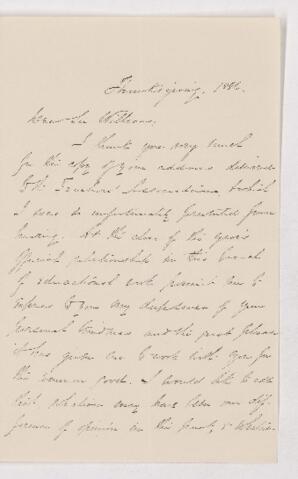 Thanksgiving, 1886.
Dear Mr Williams.
I thank you very much
for the copy of your address delivered
to the Teachers' Association, which
I was so unfortunately prevented from
hearing. At the close of this year's
official relationship in this branch
of educational work permit me to
express to you my of your
personal kindness and the great pleasure
it has given me to work with you for
the common good. I would like to add
that whatever may have been our dif-
ferences of opinion on this